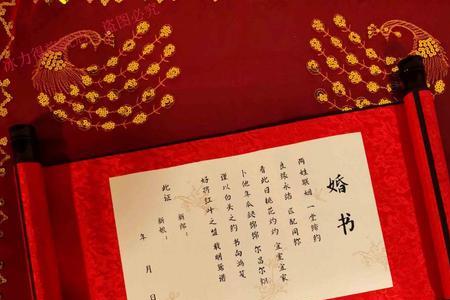 婚书
两姓联姻 一堂缔约
良缘永结 匹配同称
看此日桃花灼灼 宜室宜家
卜他年瓜瓞绵绵 尔昌尔炽
谨以白头之约 书向鸿笺
好将红叶之盟 载明鸳谱
此证
新郎：
新娘：
年 月 日
盗图必究